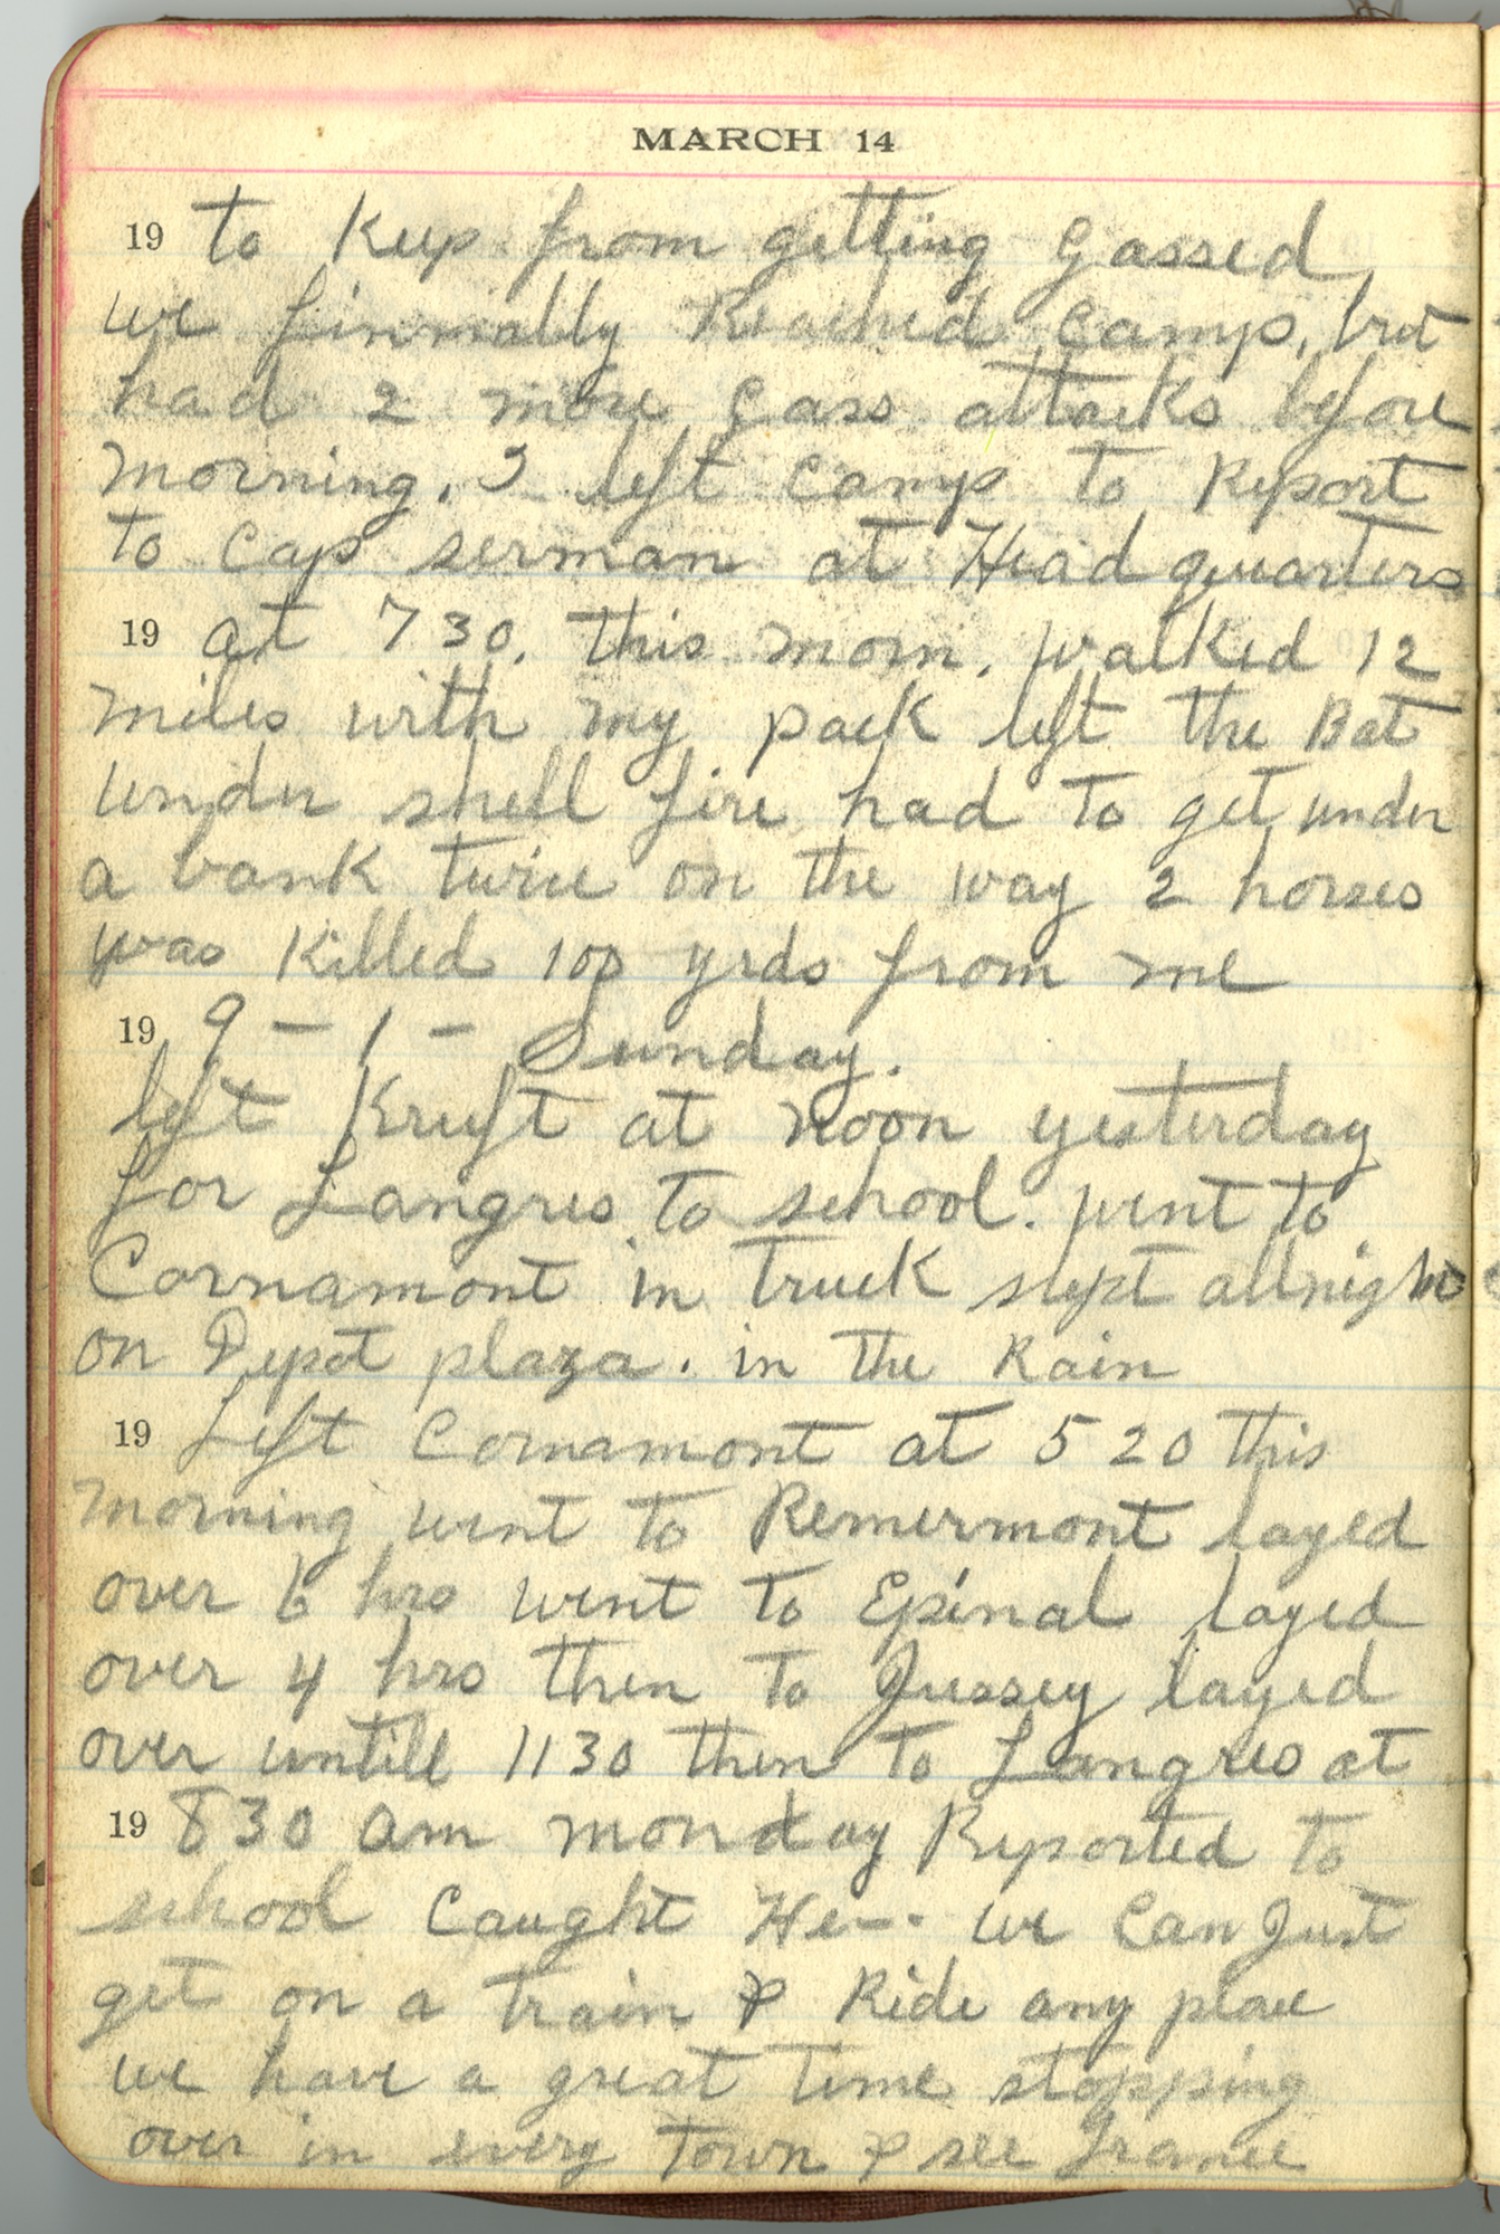 MARCH 14
19 to Keep from getting gassed
we finnally Reached Camp, but
had 2 more gass attacks before
morning. I left Camp to Report
to Cap serman at Headquarters
19 at 730. this morn. walked 12
miles with my pack left the Bat
under shell fire had to get under
a bank twice on the way 2 horses
was killed 100 yrds from me
19 9 - 1 - Sunday.
left Kruft at noon yesterday
for Langres to school. went to
Cornamont in truck slept allnight
on Depot plaza. in the Rain
19 Left Cornamont at 5 20 this
morning went to Remermont layed
over 6 hrs went to Epinal layed
over 4 hrs then to Jussey layed
over untill 1130 then to Langres at
19 830 am monday Reported to
school Caught He--. we Can Just
get on a train & Ride any place
we have a great time stopping
over in every town & see France